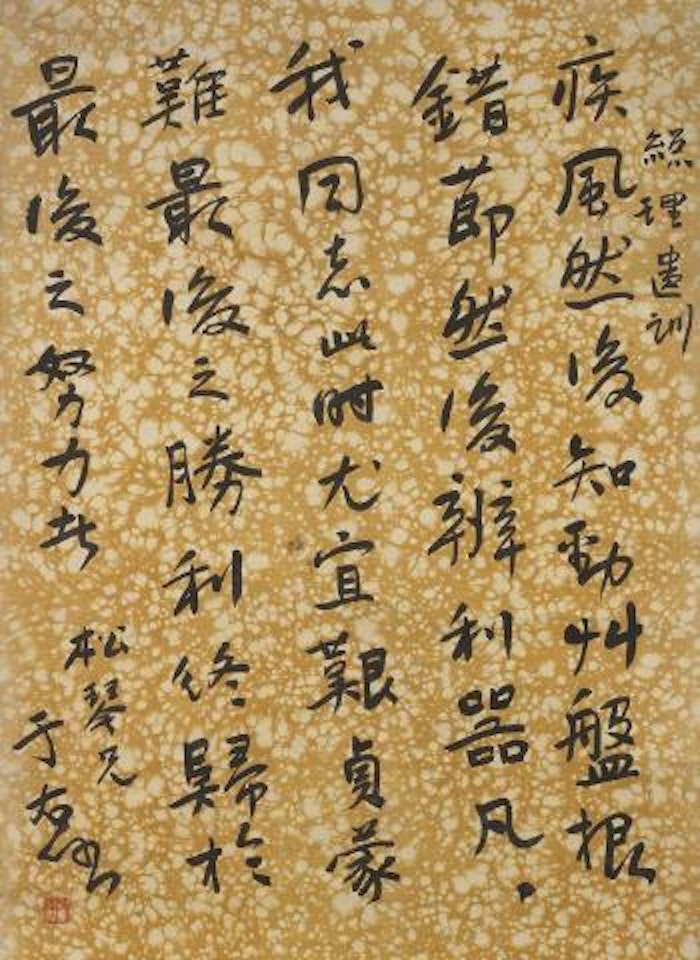 總理遺訓
疾風然後知勁艸盤根
錯節然後辨利器凡
我同志此时尤宜艱貞蒙
難最後之勝利終歸於
最後之努力者
松琴兄
于右任